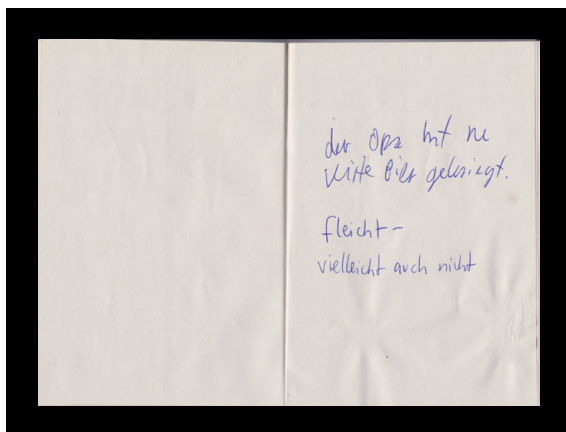 der Opa hat ne
Kiste Bier gekriegt.
fleicht-
vielleicht auch nicht